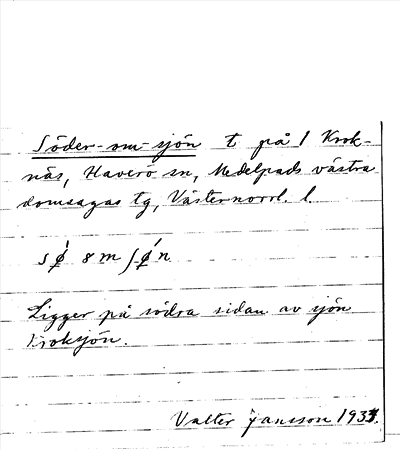 Söder-om-sjön t på 1 Krok-
näs, Haverö sn, Medelpads västra
domsagas tg, Västernorrl. l.
Ligger på södra sidan av sjön
Kroksjön.
Valter Jansson 1931.